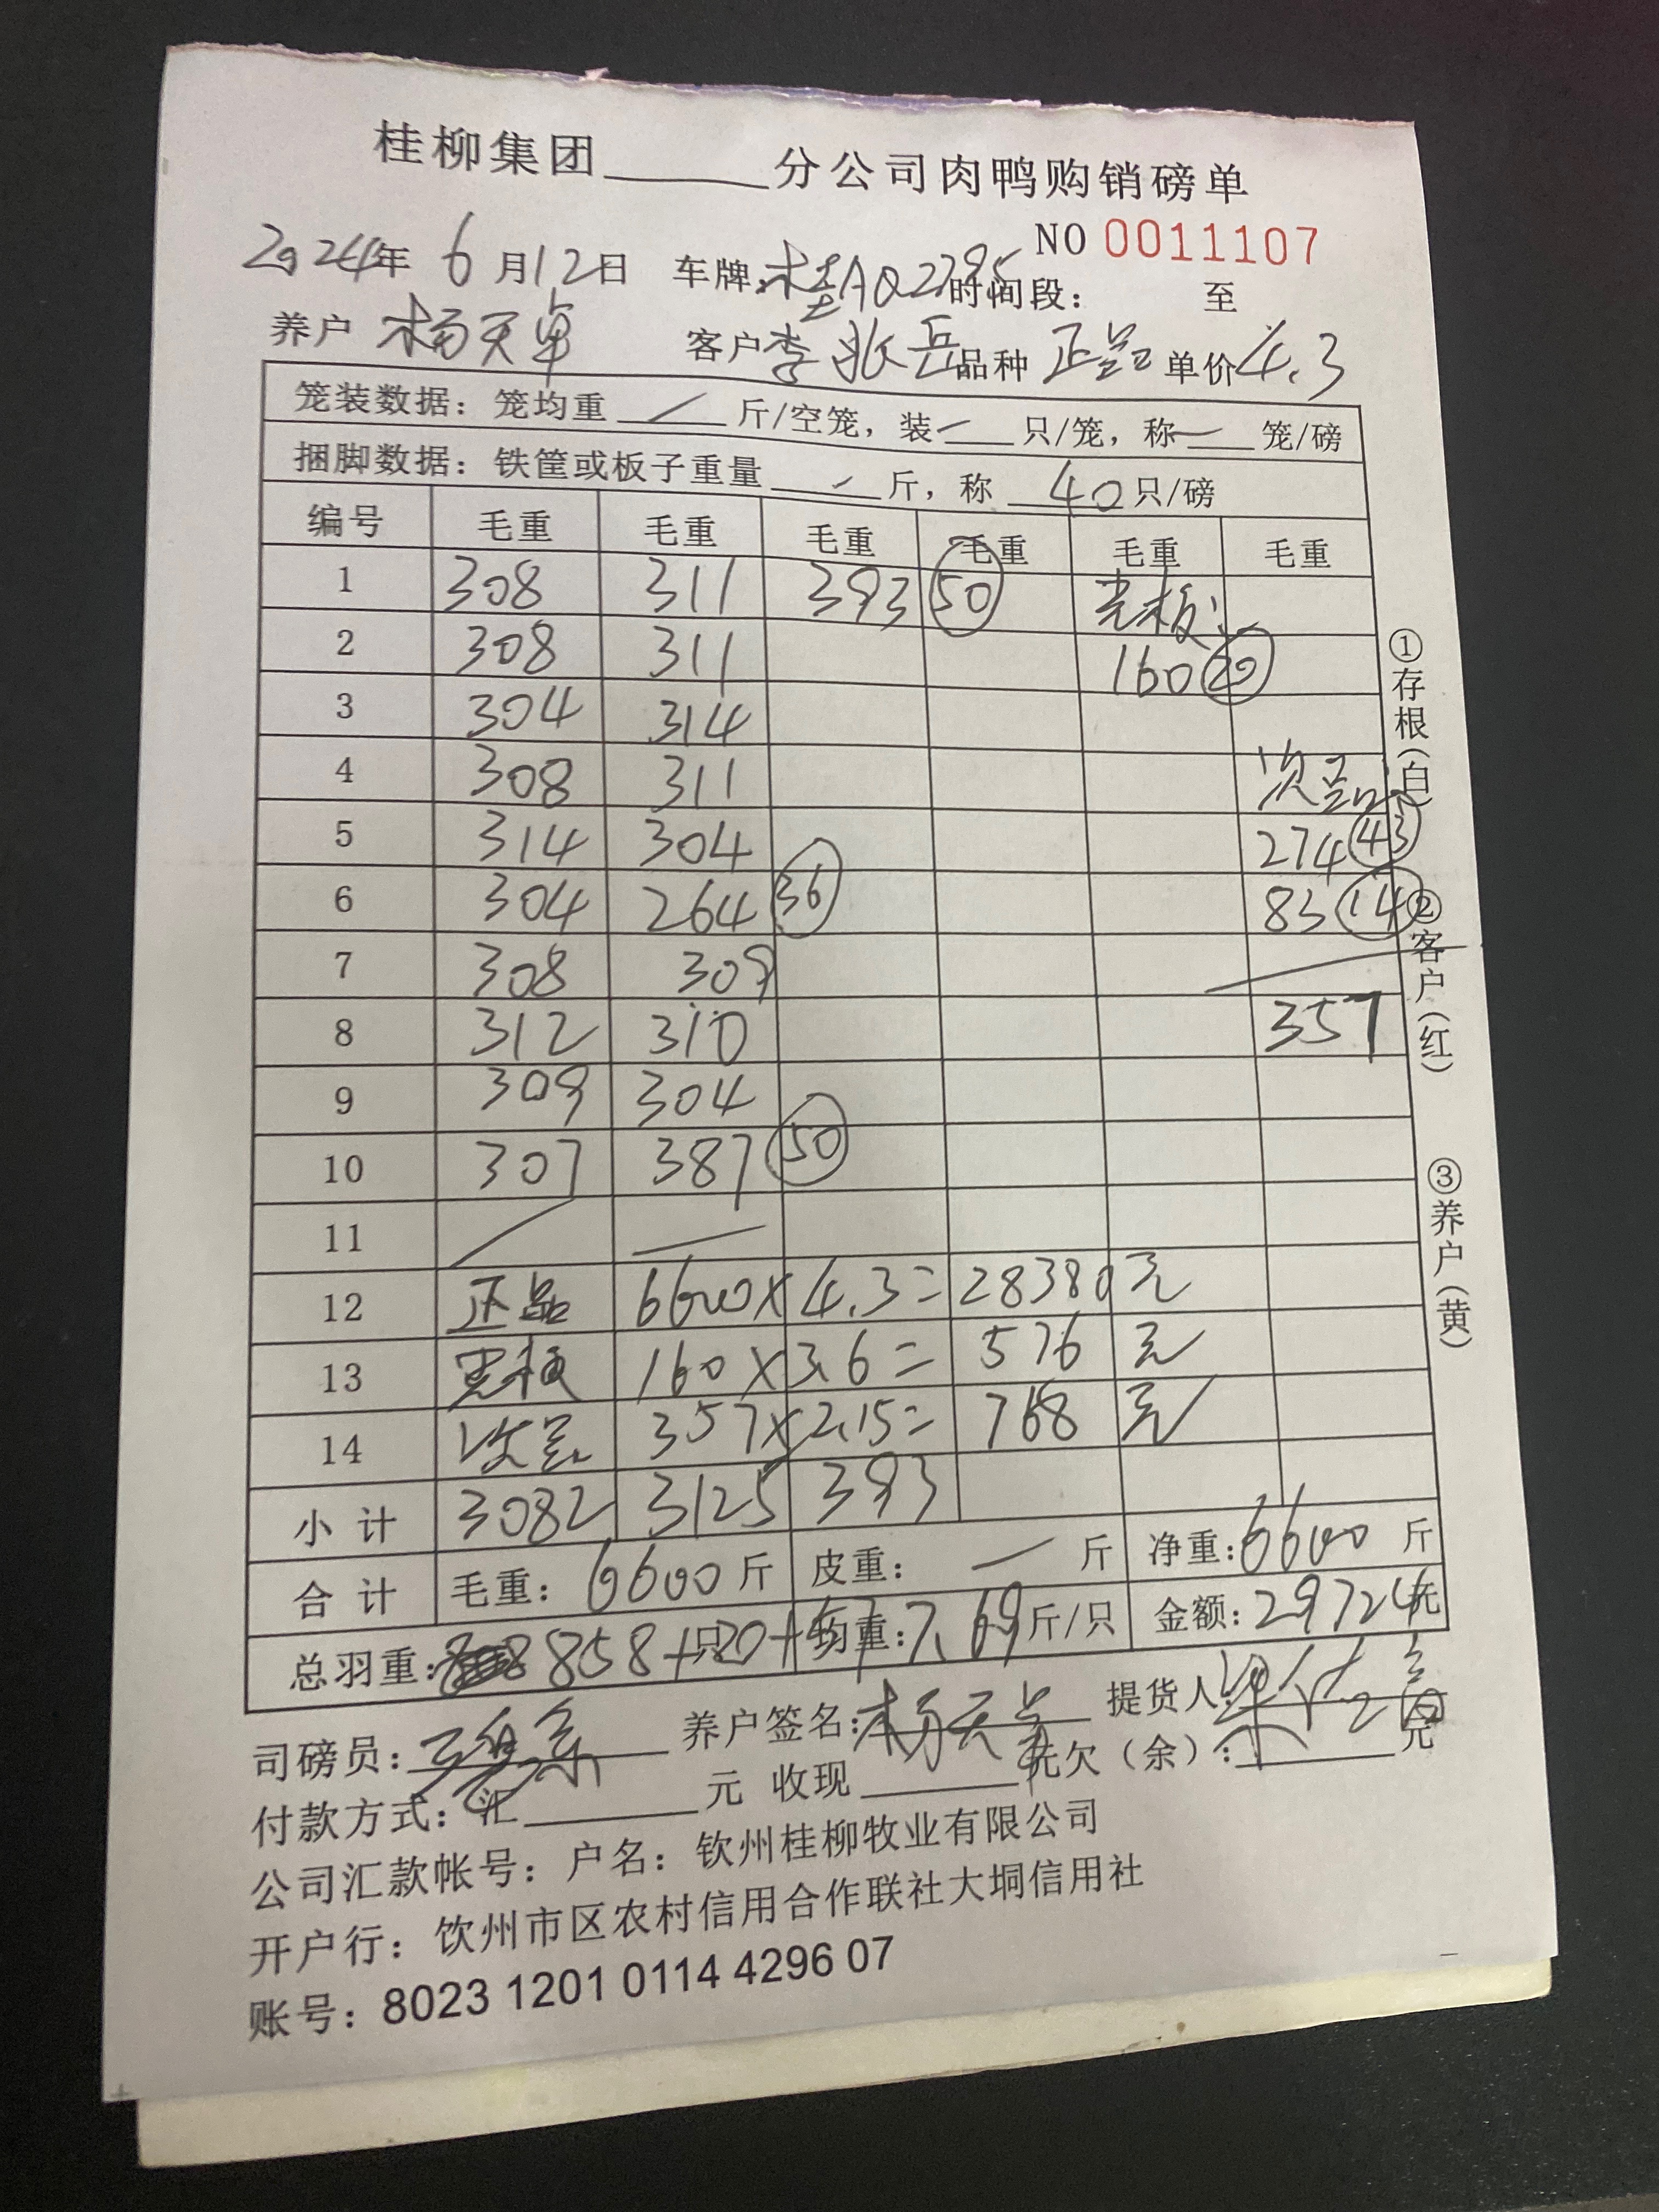 桂柳集团______分公司肉鸭购销磅单
NO 0011107
2024年 6月12日 车牌:桂AQ2795 时间段: 至
养户 杨天卓 客户 李兆岳 品种 正品 单价 4.3
笼装数据: 笼均重 / 斤/空笼, 装 — 只/笼, 称 — 笼/磅
捆脚数据: 铁筐或板子重量 / 斤, 称 40 只/磅
编号 毛重 毛重 毛重 毛重 毛重 毛重
1 308 311 393 50 光板:
2 308 311 160 20
3 304 314
4 308 311 次品
5 314 304 274 43
6 304 264 36 83 14
7 308 309
8 312 310 357
9 309 304
10 307 387 50
11 / —
12 正品 6600 × 4.3 = 28380 元
13 光板 160 × 3.6 = 576 元
14 次品 357 × 2.15 = 768 元
小计 3082 3125 393
合计 毛重: 6600 斤 皮重: — 斤 净重: 6600 斤
总羽重: 858+20+57 只 均重: 7.69 斤/只 金额: 29724 元
司磅员: 养户签名: 杨天卓 提货人:
付款方式: 汇______元 收现______元 欠(余):______元
公司汇款帐号: 户名: 钦州桂柳牧业有限公司
开户行: 钦州市区农村信用合作联社大垌信用社
账号: 8023 1201 0114 4296 07
①存根(白)
②客户(红)
③养户(黄)